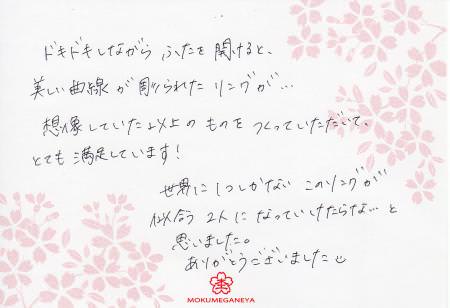 ドキドキしながら ふたを開けると、
美しい曲線が彫られたリングが…
想像していた以上のものをつくっていただいて、
とても満足しています！
世界に1つしかないこのリングが
似合う2人になっていけたらな…と
思いました。
ありがとうございました
MOKUMEGANEYA